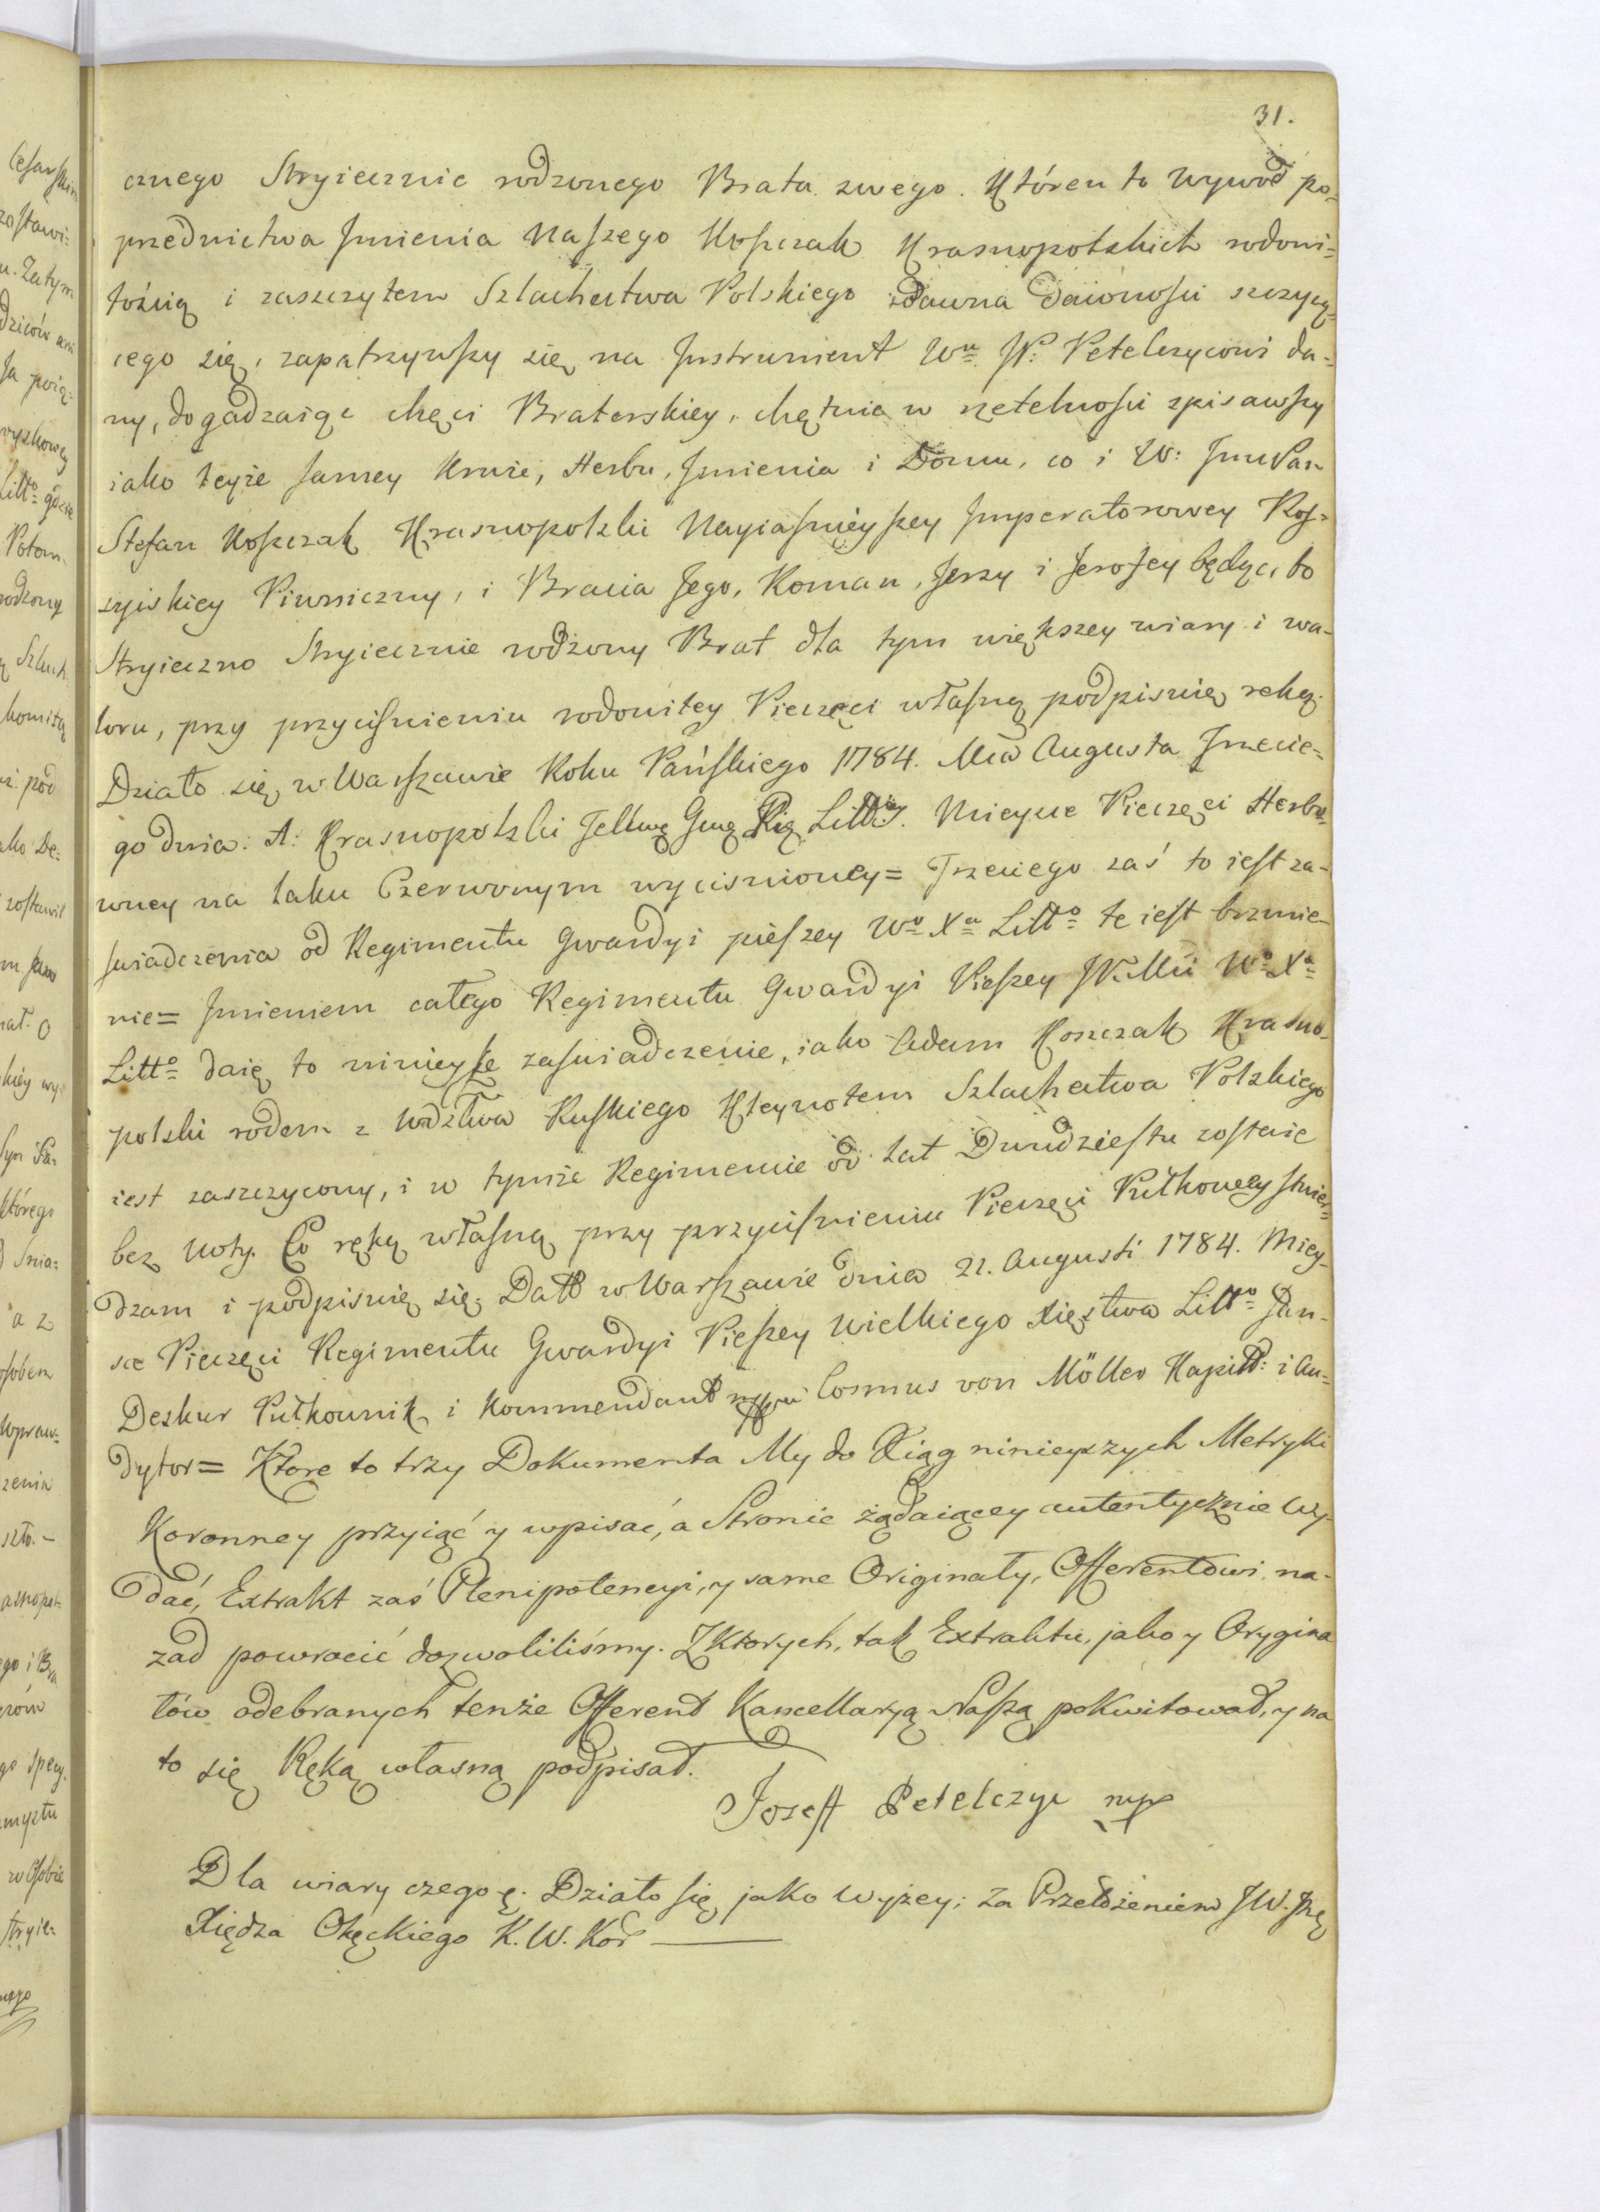 31.
cznego Stryiecznie rodzonego Brata swego. Któren to wywod po-
przednictwa Jmienia Naszego Koszczak Krasnopolskich rodowi-
tością i zaszczytem Szlachectwa Polskiego zdawna dawności szczycą-
cego się, zapatrzywszy się na Jnstrument Wu JP: Petelczycowi da-
ny, dogadzaiąc chęci Braterskiey, chętnie w rzetelności spisawszy
iako teyże samey Krwie, Herbu, Jmienia i Domu, co i W: Jmć Pan
Stefan Koszczak Krasnopolski Nayiaśnieyszey Jmperatorowey Ros-
syiskiey Piwniczny, i Bracia Jego, Roman, Jerzy i Jerofey będąc, bo
Stryieczno Stryiecznie rodzony Brat dla tym większey wiary i wa-
loru, przy przyciśnieniu rodowitey Pieczęci własną podpisuię ręką.
Działo się w Warszawie Roku Pańskiego 1784. Mca Augusta Trzecie-
go dnia: A: Krasnopolski Mieysce Pieczęci Herbo-
wney na laku Czerwonym wyciśnioney = Trzeciego zaś to iest za-
świadczenia od Regimentu Gwardyi pieszey Wo Xa Litto te iest brzmie-
nie = Jmieniem całego Regimentu Gwardyi Pieszey JKMci Wo Xa
Litto daię to ninieysze zaświadczenie, iako Adam Koszczak Krasno-
polski rodem z Wdztwa Ruskiego Kleynotem Szlachectwa Polskiego
iest zaszczycony, i w tymże Regimencie od lat Dwudziestu zostaie
bez noty. Co ręką własną przy przyciśnieniu Pieczęci Pułkowey stwier-
dzam i podpisuię się. Datt w Warszawie dnia 21. Augusti 1784. Miey-
sce Pieczęci Regimentu Gwardyi Pieszey Wielkiego Xięstwa Litto Jan
Deskur Pułkownik i Kommendant mppria Cosmus von Möller Kapitt: i Au-
dytor = Ktore to trzy Dokumenta My do Xiąg ninieyszych Metryki
Koronney przyiąć y wpisać, a Stronie żądaiącey autentycznie wy-
dać, Extrakt zaś Plenipotencyi, y same Originały, Offerentowi na-
zad powrocić dozwoliliśmy. Z Ktorych, tak Extraktu, jako y Orygina
łów odebranych tenże Offerent Kancellaryą Naszą pokwitował, y na
to się Ręką własną podpisał.
Jozeff Petelczyc mp
Dla wiary czego ę. Działo się jako wyżey; za Przełożeniem JW. Jmę
Xiędza Okęckiego K. W. Kor